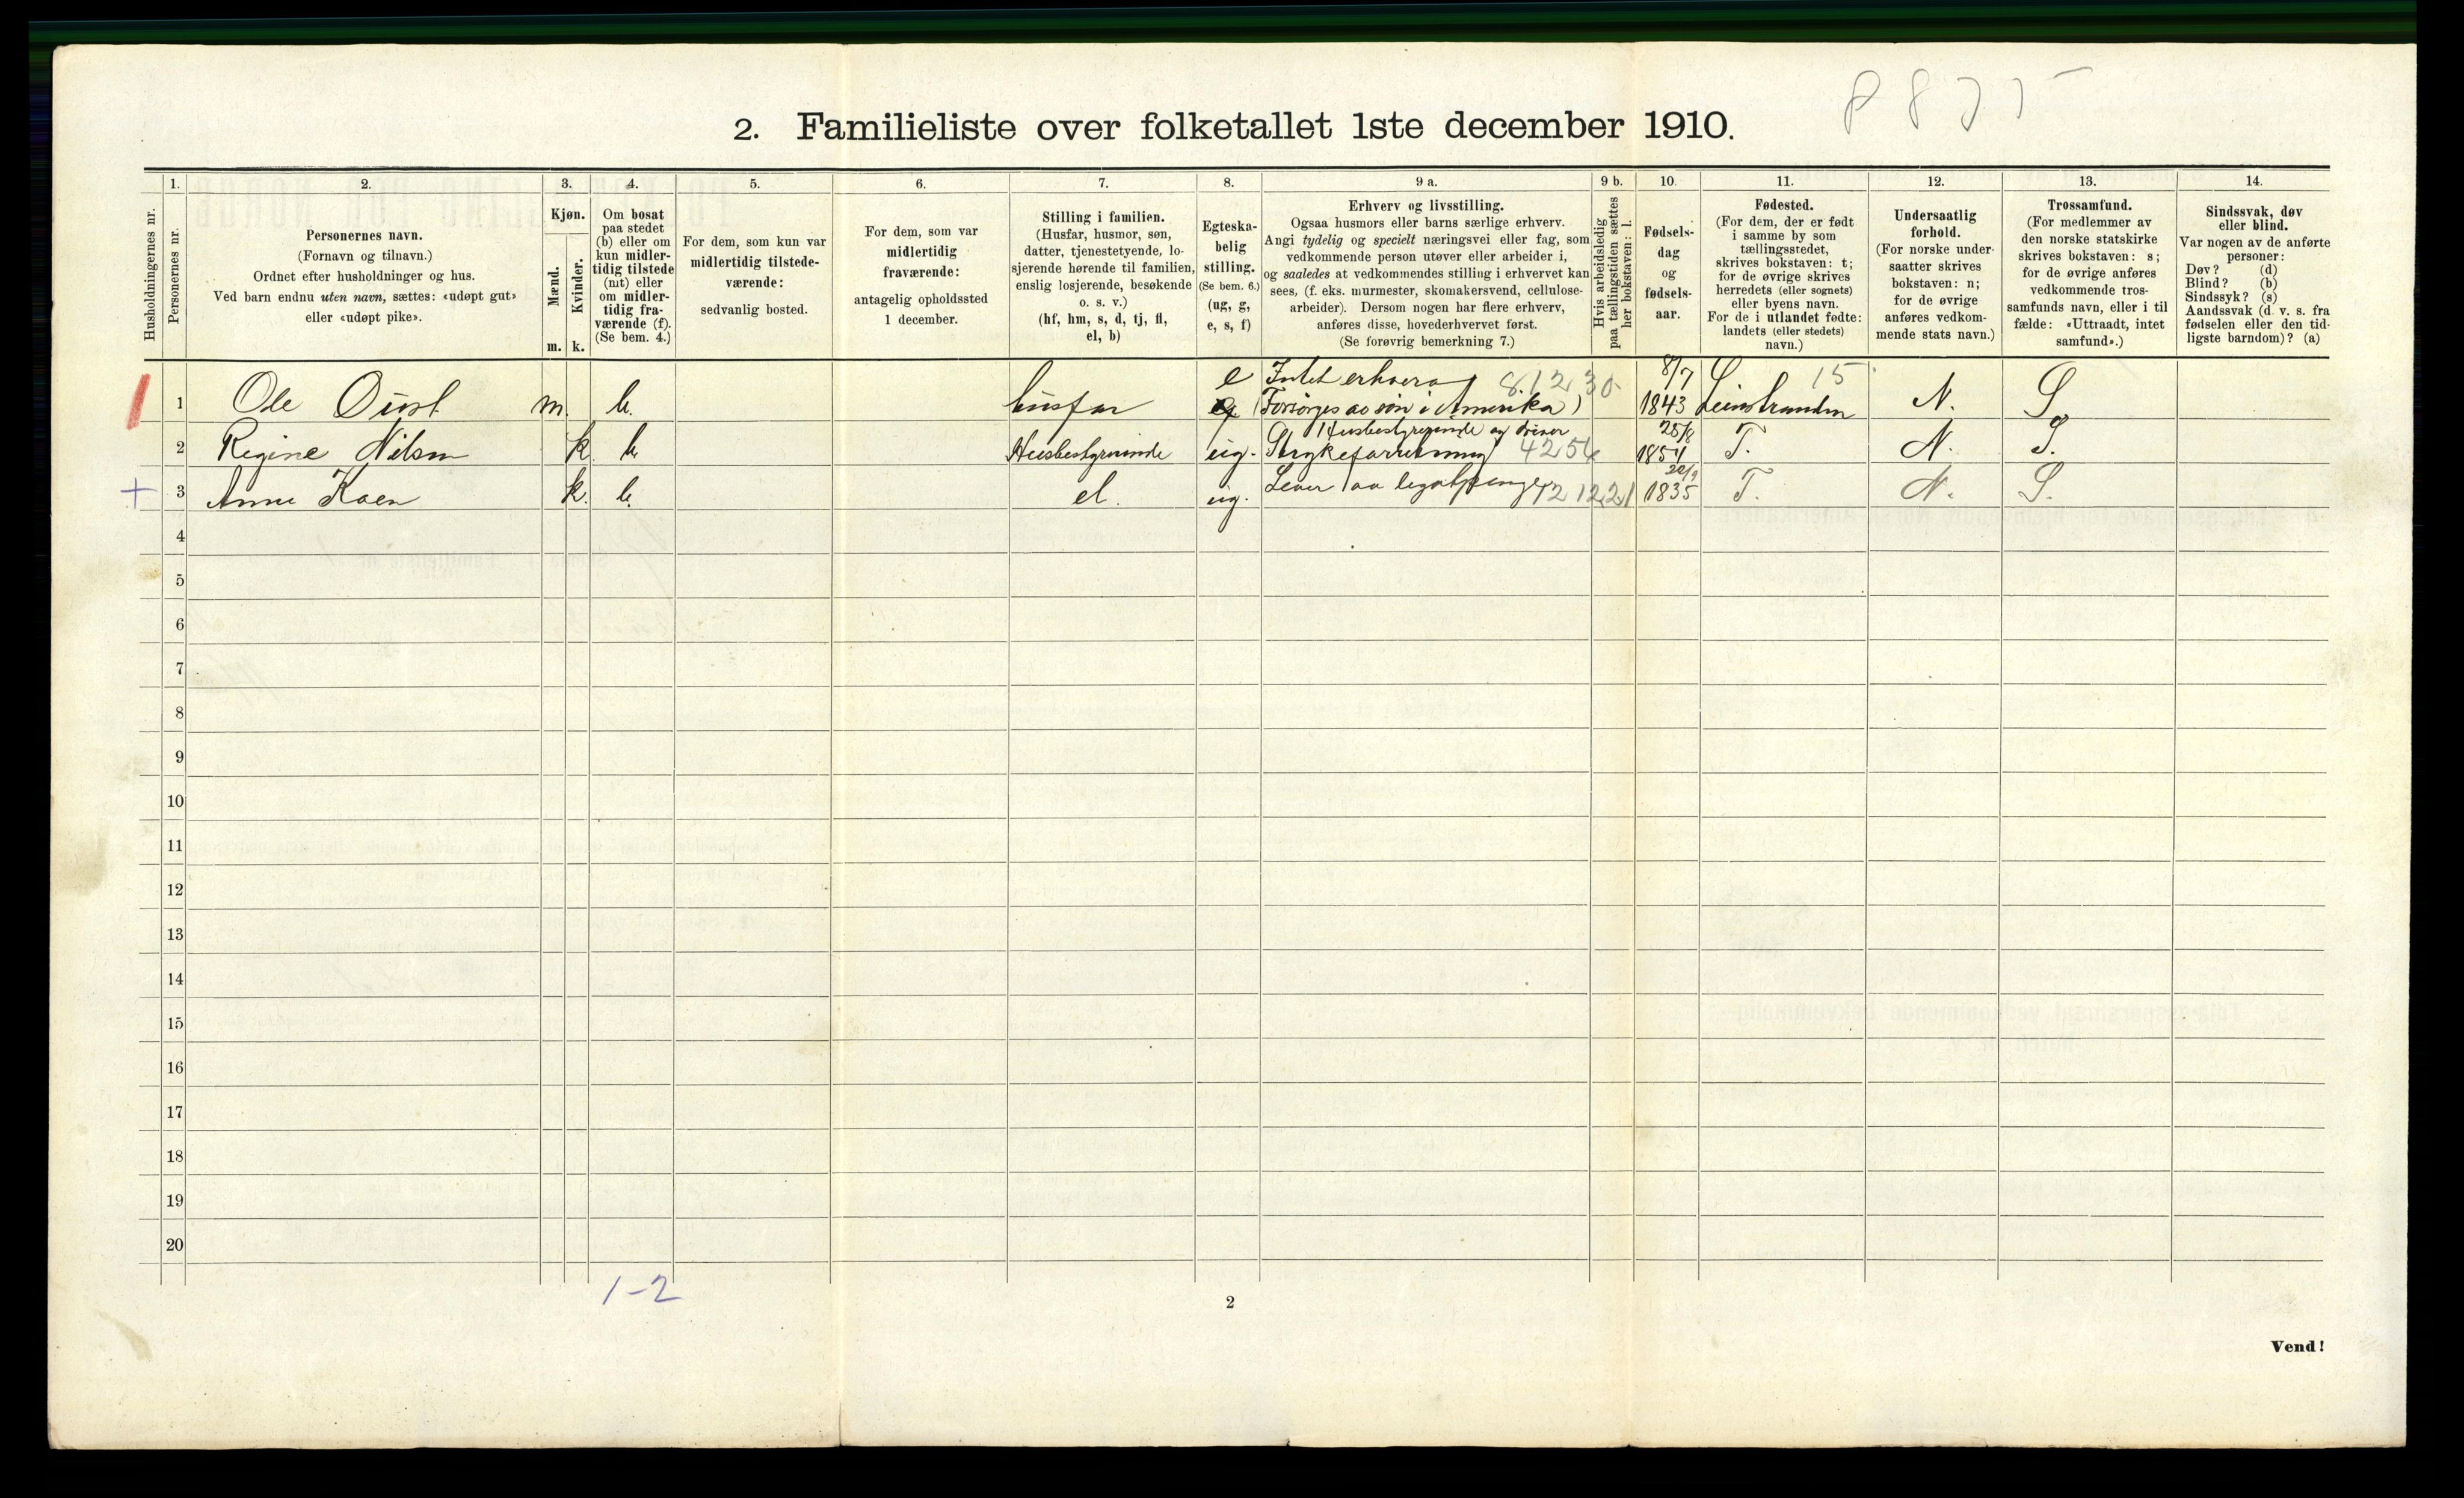 2. Familieliste over folketallet 1ste december 1910.
Husholdningernes nr.
1.
Personernes nr.
2.
Personernes navn.
(Fornavn og tilnavn.)
Ordnet efter husholdninger og hus.
Ved barn endnu uten navn, sættes: «udøpt gut»
eller «udøpt pike».
3.
Kjøn.
Mænd.
Kvinder.
m. k.
4.
Om bosat
paa stedet
(b) eller om
kun midler-
tidig tilstede
(mt) eller
om midler-
tidig fra-
værende (f).
(Se bem. 4.)
5.
For dem, som kun var
midlertidig tilstede-
værende:
sedvanlig bosted.
6.
For dem, som var
midlertidig
fraværende:
antagelig opholdssted
1 december.
7.
Stilling i familien.
(Husfar, husmor, søn,
datter, tjenestetyende, lo-
sjerende hørende til familien,
enslig losjerende, besøkende
o. s. v.)
(hf, hm, s, d, tj, fl,
el, b)
8.
Egteska-
belig
stilling.
(Se bem. 6.)
(ug, g,
e, s, f)
9 a.
Erhverv og livsstilling.
Ogsaa husmors eller barns særlige erhverv.
Angi tydelig og specielt næringsvei eller fag, som
vedkommende person utøver eller arbeider i,
og saaledes at vedkommendes stilling i erhvervet kan
sees, (f. eks. murmester, skomakersvend, cellulose-
arbeider). Dersom nogen har flere erhverv,
anføres disse, hovederhvervet først.
(Se forøvrig bemerkning 7.)
9 b.
Hvis arbeidsledig
paa tællingstiden sættes
her bokstaven: l.
10.
Fødsels-
dag
og
fødsels-
aar.
11.
Fødested.
(For dem, der er født
i samme by som
tællingsstedet,
skrives bokstaven: t;
for de øvrige skrives
herredets (eller sognets)
eller byens navn.
For de i utlandet fødte:
landets (eller stedets)
navn.)
12.
Undersaatlig
forhold.
(For norske under-
saatter skrives
bokstaven: n;
for de øvrige
anføres vedkom-
mende stats navn.)
13.
Trossamfund.
(For medlemmer av
den norske statskirke
skrives bokstaven: s;
for de øvrige anføres
vedkommende tros-
samfunds navn, eller i til
fælde: «Uttraadt, intet
samfund».)
14.
Sindssvak, døv
eller blind.
Var nogen av de anførte
personer:
Døv? (d)
Blind? (b)
Sindssyk? (s)
Aandssvak (d. v. s. fra
fødselen eller den tid-
ligste barndom)? (a)
e Intet erhverv 8.12.30 8/7 15
1 Ole m. b. husfar (Forsørges av søn i Amerika) 1843 Leinstranden N. S.
Husbestyrerinde og driver 25/8
2 Regine Nilsen k. b. Husbestyrerinde ug. Strykeforretning 1851 T. N. S.
3 k. b. el. ug. Lever av legatpenger 1835 T. N. S.
4
5
6
7
8
9
10
11
12
13
14
15
16
17
18
19
20
1-2
2
Vend!